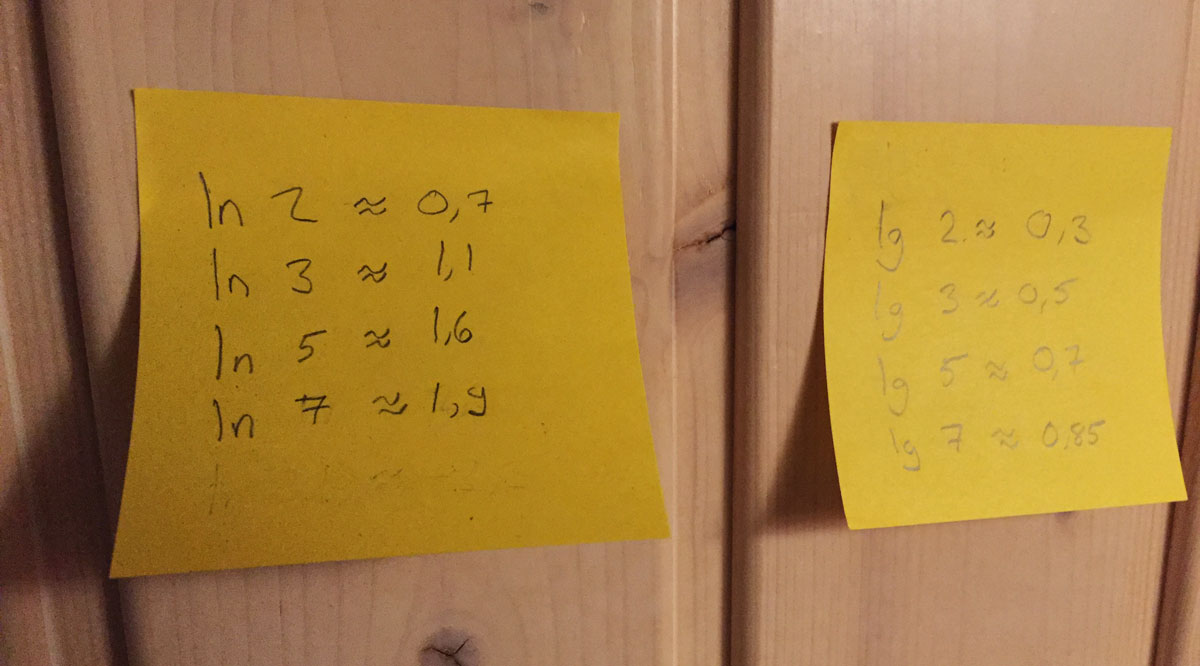 ln 2 ≈ 0,7
ln 3 ≈ 1,1
ln 5 ≈ 1,6
ln 7 ≈ 1,9
lg 2 ≈ 0,3
lg 3 ≈ 0,5
lg 5 ≈ 0,7
lg 7 ≈ 0,85